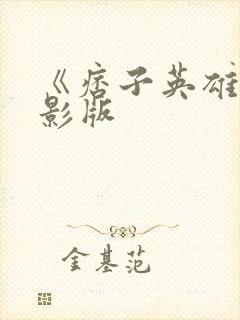 《痞子英雄
影版
金基范